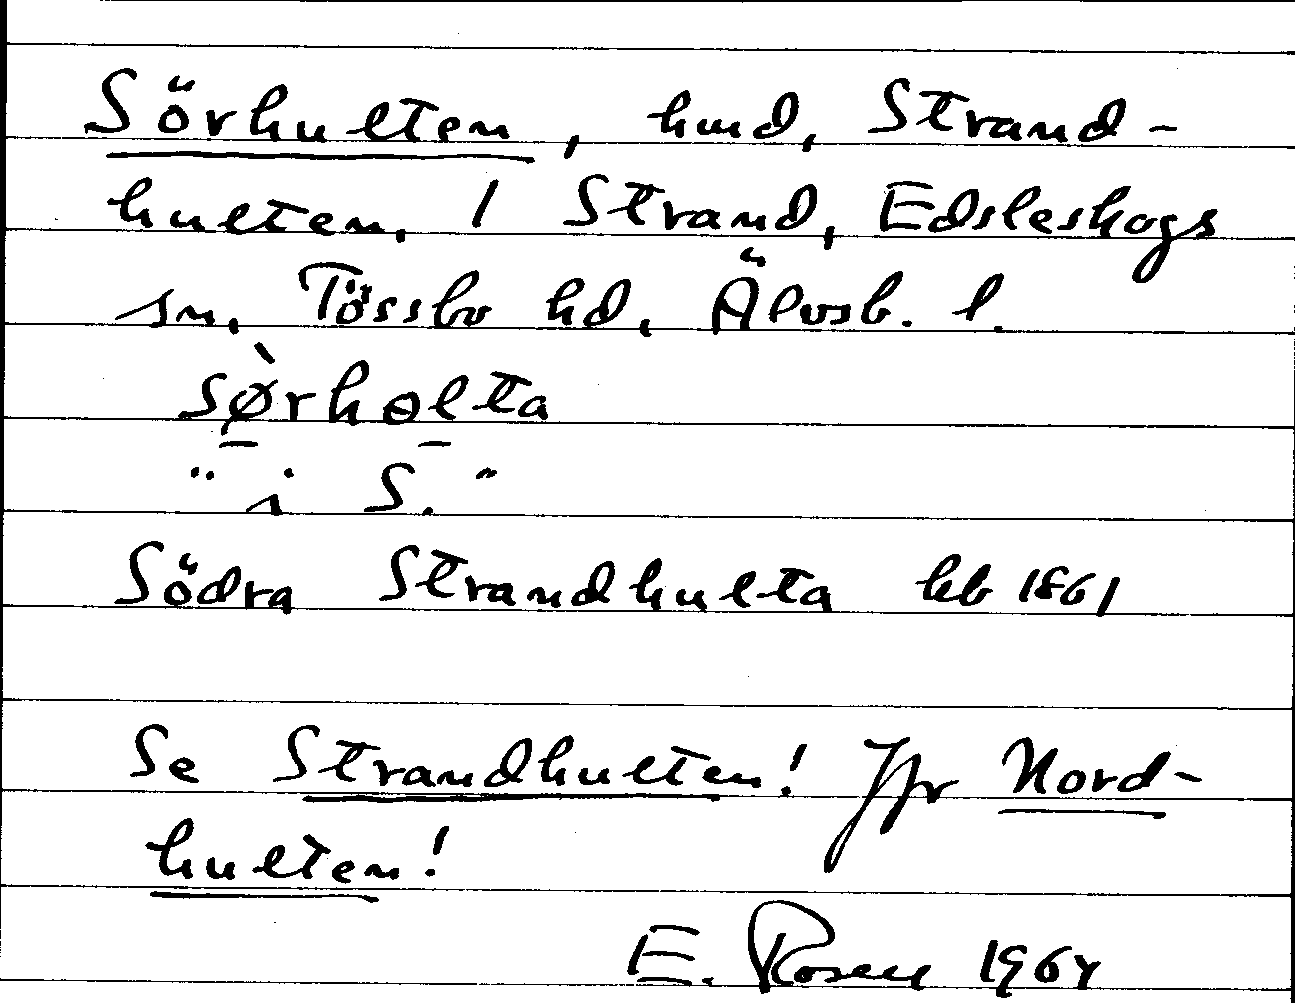 Sörhulten, hmd, Strand-
hulten, 1 Strand, Edsleskogs
sn, Tössbo hd, Älvsb. l.
sø̱̀rhɵ̱lta
"i S."
Södra Strandhulta hb 1861
Se Strandhulten! Jfr Nord-
hulten!
E. Rosen 1964